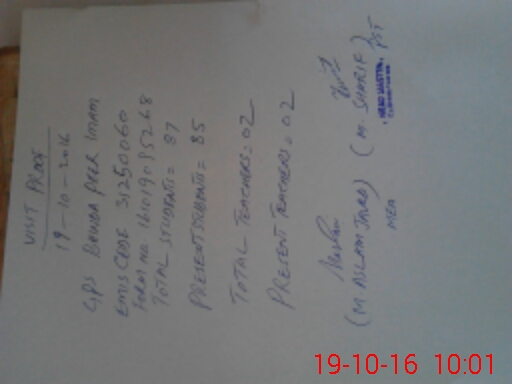 VISIT PROOF
19-10-2016
GPS BHINDA PEER IMAM
EMIS CODE 31250060
FORM NO. 161019095268
TOTAL STUDENTS = 87
PRESENT STUDENTS = 85
TOTAL TEACHERS = 02
PRESENT TEACHERS = 02
(M. ASLAM JAVED) (M. SHARIF) PST
MEA HEAD MASTER,
19-10-16 10:01